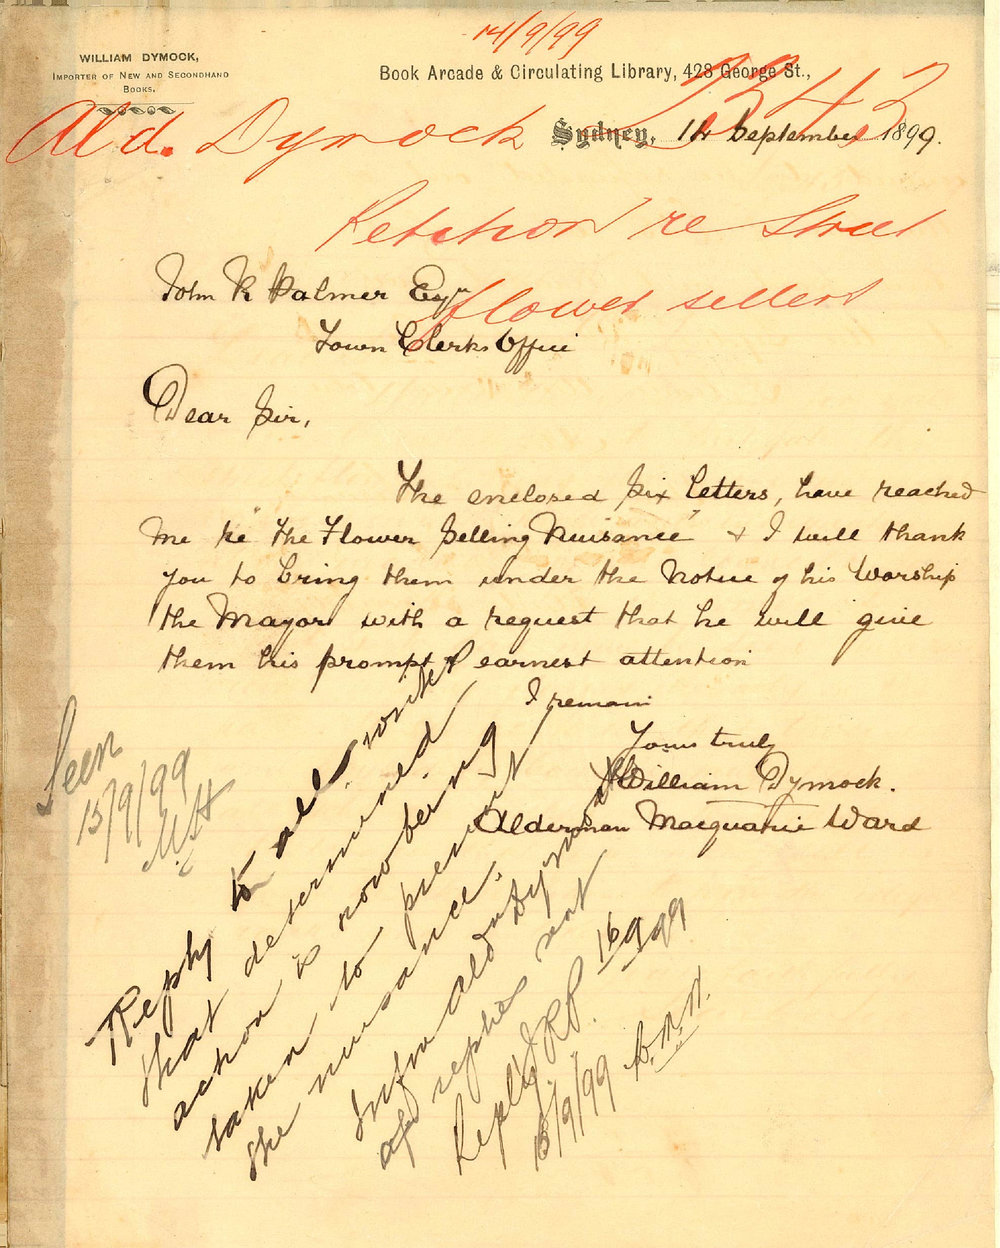 14/9/99
WILLIAM DYMOCK,
IMPORTER OF NEW AND SECONDHAND
BOOKS.
Book Arcade & Circulating Library, 428 George St.,
Ald. Dymock
Sydney, 14 September 1899.
Petition re Street
flower sellers
John R Palmer Esqre
Town Clerks Office
Dear Sir,
The enclosed six letters, have reached
me re "The Flower Selling Nuisance" & I will thank
you to bring them under the notice of his Worship
the Mayor with a request that he will give
them his prompt & earnest attention
I remain
Yours truly
William Dymock.
Alderman Macquarie Ward
Seen
15/9/99
Reply to all writers
that determined
action is now being
taken to prevent
the nuisance.
Inform Ald Dymock
of replies sent
JRP.
15/9/99
Reply
16/9/99